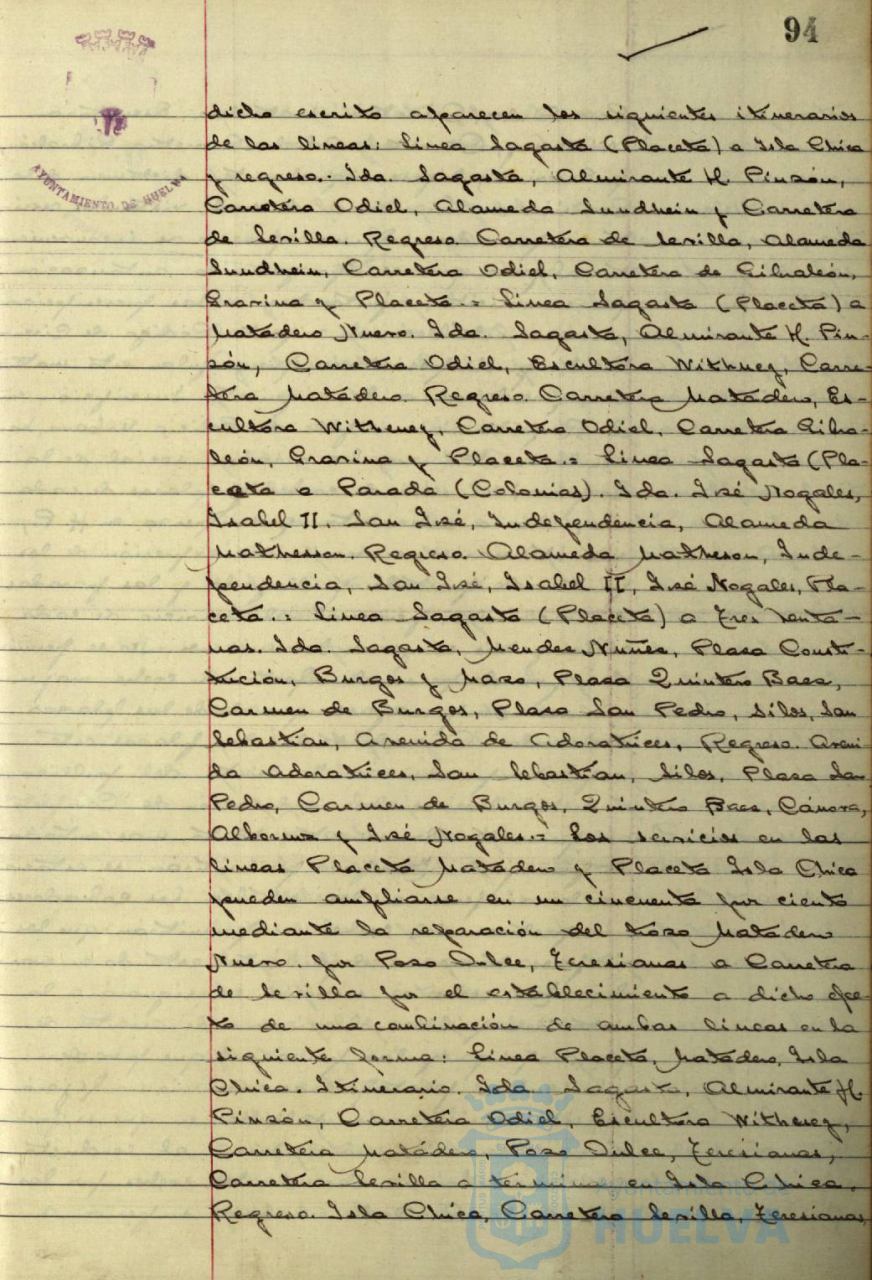 94
AYUNTAMIENTO DE HUELVA
dicho escrito aparecen los siguientes itinerarios
de las lineas: Linea Sagasta (Placeta) a Isla Chica
y regreso.- Ida. Sagasta, Almirante H. Pinzón,
Carretera Odiel, Alameda Sundhein y Carretera
de Sevilla. Regreso. Carretera de Sevilla, Alameda
Sundhein, Carretera Odiel, Carretera de Gibraleón,
Gravina y Placeta.= Linea Sagasta (Placeta) a
Matadero Nuevo. Ida. Sagasta, Almirante H. Pin-
zón, Carretera Odiel, Escultora Withney, Carre-
tera Matadero. Regreso. Carretera Matadero, Es-
cultora Witheney, Carretera Odiel, Carretera Gibra-
león, Gravina y Placeta.= Linea Sagasta (Pla-
ceta a Parada (Colonias). Ida. José Nogales,
Isabel II. San José, Independencia, Alameda
Mathesson. Regreso. Alameda Matheson, Inde-
pendencia, San José, Isabel II, José Nogales, Pla-
ceta.= Linea Sagasta (Placeta) a Tres Venta-
nas. Ida. Sagasta, Mendez Nuñez, Plaza Consti-
tución, Burgos y Mazo, Plaza Quintero Baez,
Carmen de Burgos, Plaza San Pedro, Silos, San
Sebastian, Avenida de Adoratrices, Regreso. Aveni
da Adoratrices, San Sebastian, Silos, Plaza San
Pedro, Carmen de Burgos, Quintero Baez, Cánova,
Albornoz y José Nogales.= Los servicios en las
lineas Placeta Matadero y Placeta Isla Chica
pueden ampliarse en un cincuenta por ciento
mediante la reparación del trozo Matadero
Nuevo. por Pozo Dulce, Teresianas a Carretera
de Sevilla por el establecimiento a dicho efec-
to de una combinación de ambas lineas en la
siguiente forma: Linea Placeta, Matadero, Isla
Chica. Itinerario. Ida. Sagasta, Almirante H.
Pinzón, Carretera Odiel, Escultora Witheney,
Carretera Matadero, Pozo Dulce, Teresianas,
Carretera Sevilla a termino en Isla Chica.
Regreso. Isla Chica, Carretera Sevilla, Teresianas,
Ayuntamiento de
HUELVA